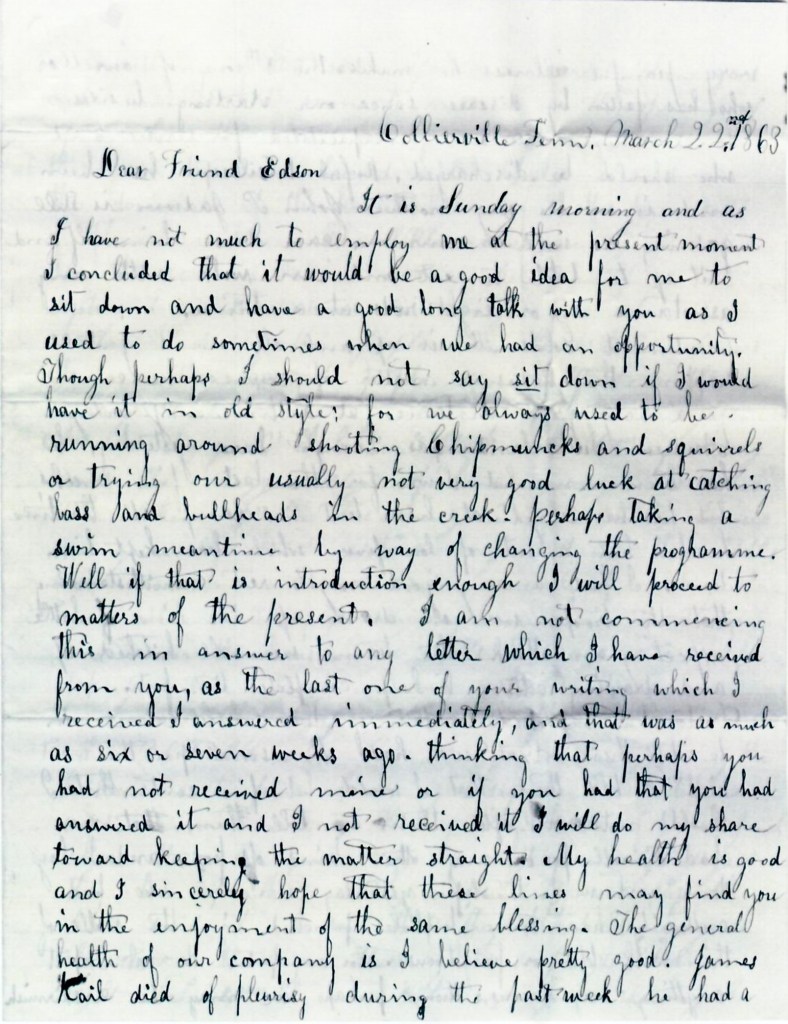 Collierville Tenn. March 22nd, 1863
Dear Friend Edson
It is Sunday morning and as
I have not much to employ me at the present moment
I concluded that it would be a good idea for me to
sit down and have a good long talk with you as I
used to do sometimes when we had an opportunity.
Though perhaps I should not say sit down if I would
have it in old style; for we always used to be
running around shooting Chipmuncks and squirrels
or trying our usually not very good luck at catching
bass and bullheads in the creek. perhaps taking a
swim meantime by way of changing the programme.
Well if that is introduction enough I will proceed to
matters of the present. I am not commencing
this in answer to any letter which I have received
from you, as the last one of your writing which I
received I answered immediately, and that was as much
as six or seven weeks ago. thinking that perhaps you
had not received mine or if you had that you had
answered it and I not received it I will do my share
toward keeping the matter straight. My health is good
and I sincerely hope that these lines may find you
in the enjoyment of the same blessing. The general
health of our company is I believe pretty good. James
Kail died of pleurisy during the past week he had a